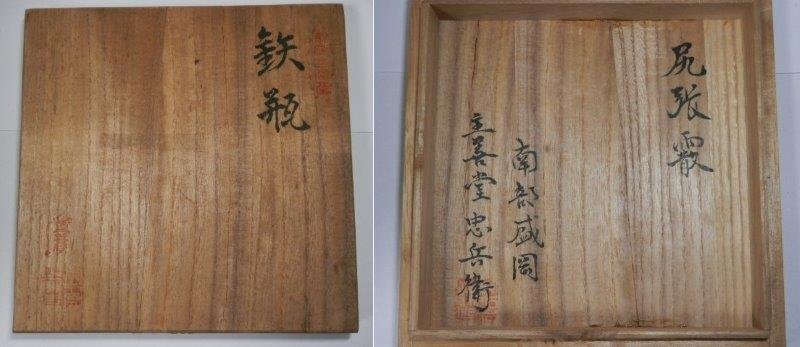 鉄瓶
尻張霰
南部盛岡
主善堂忠兵衛